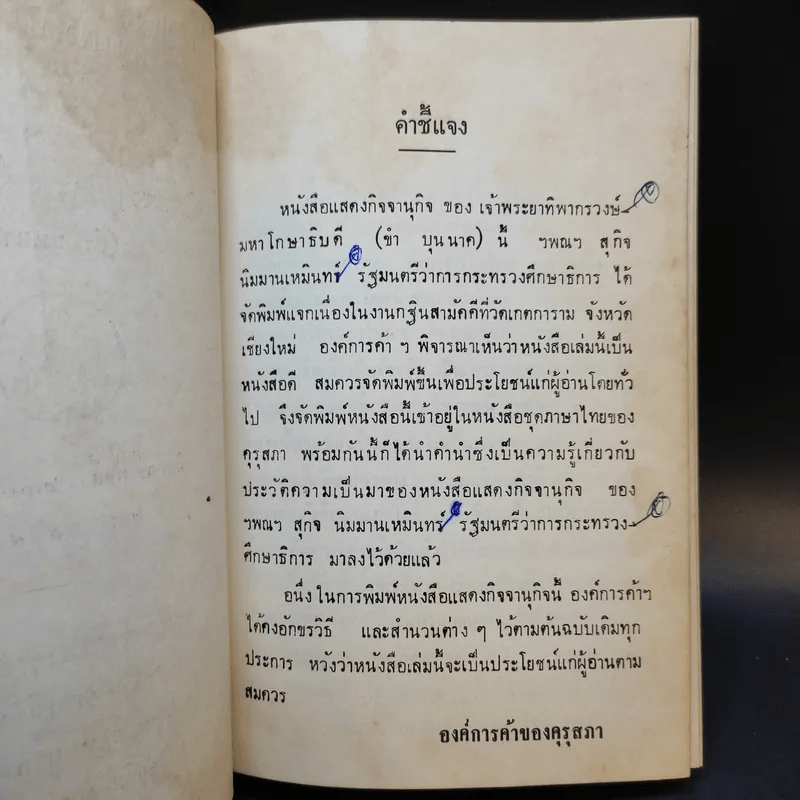 คำชี้แจง
หนังสือแสดงกิจจานุกิจ ของ เจ้าพระยาทิพากรวงษ์-
มหาโกษาธิบดี (ขำ บุนนาค) นี้ ฯพณฯ สุกิจ
นิมมานเหมินทร์ รัฐมนตรีว่าการกระทรวงศึกษาธิการ ได้
จัดพิมพ์แจกเนื่องในงานกฐินสามัคคีที่วัดเกตการาม จังหวัด
เชียงใหม่ องค์การค้า ฯ พิจารณาเห็นว่าหนังสือเล่มนี้เป็น
หนังสือดี สมควรจัดพิมพ์ขึ้นเพื่อประโยชน์แก่ผู้อ่านโดยทั่ว
ไป จึงจัดพิมพ์หนังสือนี้เข้าอยู่ในหนังสือชุดภาษาไทยของ
คุรุสภา พร้อมกันนี้ก็ได้นำคำนำซึ่งเป็นความรู้เกี่ยวกับ
ประวัติความเป็นมาของหนังสือแสดงกิจจานุกิจ ของ
ฯพณฯ สุกิจ นิมมานเหมินทร์ รัฐมนตรีว่าการกระทรวง-
ศึกษาธิการ มาลงไว้ด้วยแล้ว
อนึ่ง ในการพิมพ์หนังสือแสดงกิจจานุกิจนี้ องค์การค้าฯ
ได้คงอักขรวิธี และสำนวนต่าง ๆ ไว้ตามต้นฉบับเดิมทุก
ประการ หวังว่าหนังสือเล่มนี้จะเป็นประโยชน์แก่ผู้อ่านตาม
สมควร
องค์การค้าของคุรุสภา